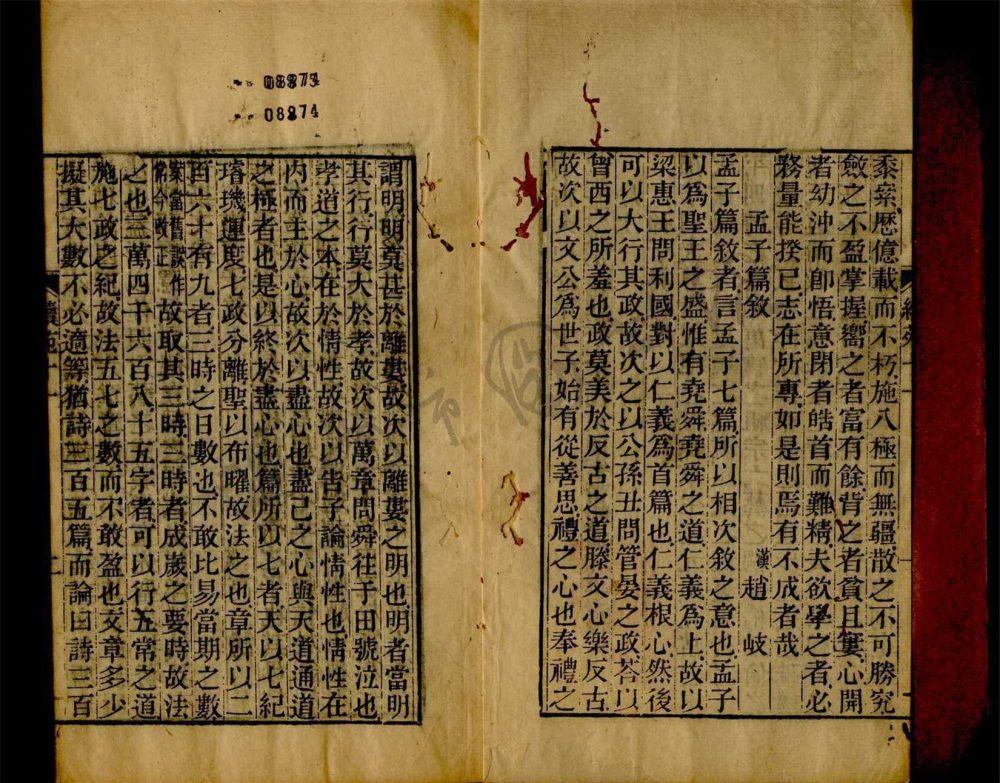 黍絫歷億載而不朽施八極而無疆散之不可勝究
斂之不盈掌握嚮之者富有餘背之者貧且寠心開
者幼沖而卽悟意閉者皓首而難精夫欲學之者必
務量能揆己志在所專如是則焉有不成者哉
孟子篇敘
漢 趙 岐
孟子篇敘者言孟子七篇所以相次敘之意也孟子
以爲聖王之盛惟有堯舜堯舜之道仁義爲上故以
梁惠王問利國對以仁義爲首篇也仁義根心然後
可以大行其政故次之以公孫丑問管晏之政荅以
曾西之所羞也政莫美於反古之道滕文心樂反古
故次以文公爲世子始有從善思禮之心也奉禮之
08873
08874
謂明明莫甚於離婁故次以離婁之明也明者當明
其行行莫大於孝故次以萬章問舜往于田號泣也
孝道之本在於情性故次以告子論情性也情性在
內而主於心故次以盡心也盡己之心與天道通道
之極者也是以終於盡心也篇所以七者天以七紀
璿璣運度七政分離聖以布曜故法之也章所以二
百六十有九者三時之日數也不敢比易當期之數
案當舊誤作
常今改正
故取其三時三時者成歲之要時故法
之也三萬四千六百八十五字者可以行五常之道
施七政之紀故法五七之數而不敢盈也文章多少
擬其大數不必適等猶詩三百五篇而論曰詩三百